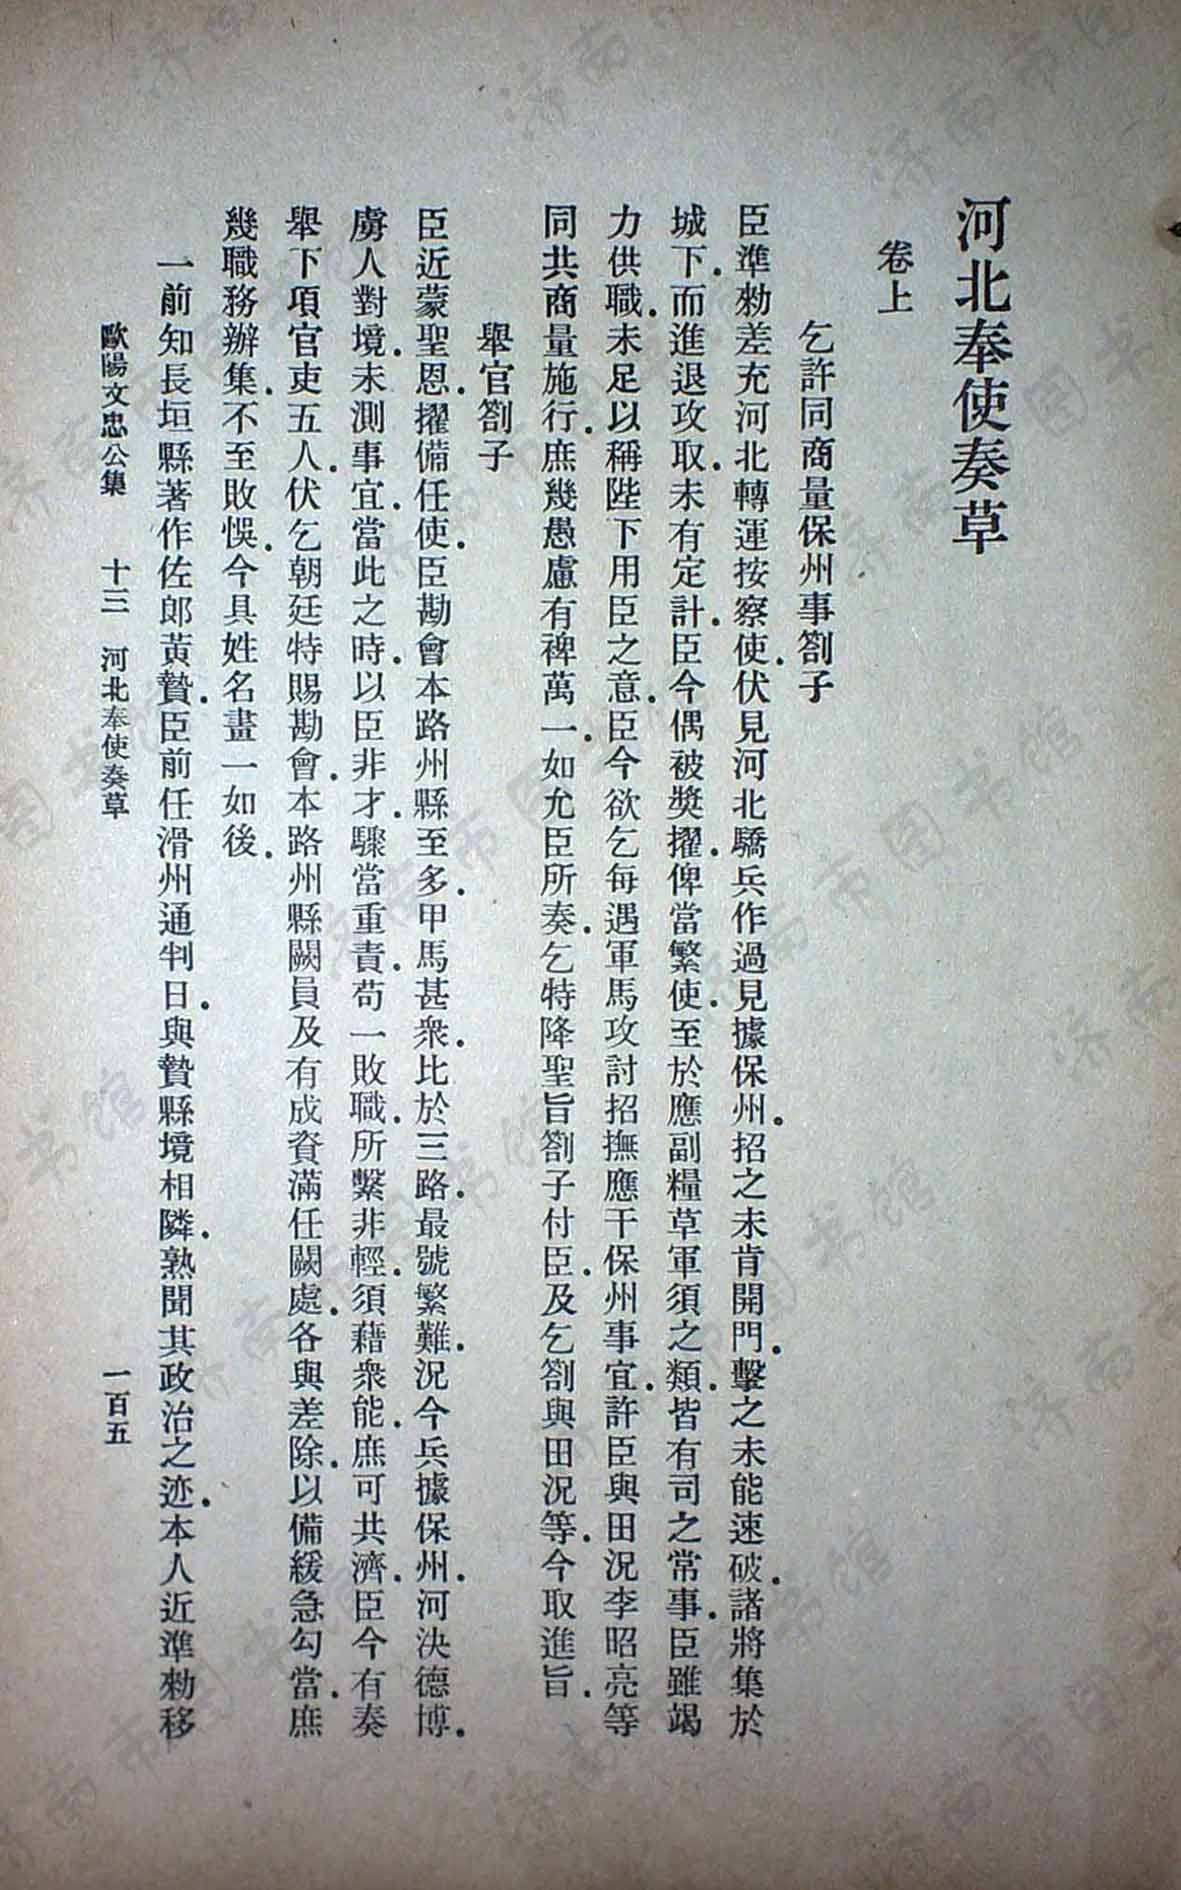 河北奉使奏草
卷上
乞許同商量保州事劄子
臣準勑差充河北轉運按察使．伏見河北驕兵作過見據保州．招之未肯開門．擊之未能速破．諸將集於
城下．而進退攻取．未有定計．臣今偶被奬擢．俾當繁使．至於應副糧草軍須之類．皆有司之常事．臣雖竭
力供職．未足以稱陛下用臣之意．臣今欲乞每遇軍馬攻討招撫應干保州事宜．許臣與田況李昭亮等
同共商量施行．庶幾愚慮有裨萬一．如允臣所奏．乞特降聖旨劄子付臣．及乞劄與田況等．今取進旨．
舉官劄子
臣近蒙聖恩．擢備任使．臣勘會本路州縣至多．甲馬甚衆．比於三路．最號繁難．況今兵據保州．河決德博．
虜人對境．未測事宜．當此之時．以臣非才．驟當重責．苟一敗職．所繫非輕．須藉衆能．庶可共濟．臣今有奏
舉下項官吏五人．伏乞朝廷特賜勘會．本路州縣闕員及有成資滿任闕處．各與差除．以備緩急勾當．庶
幾職務辦集．不至敗悞．今具姓名畫一如後．
一前知長垣縣著作佐郎黃贄．臣前任滑州通判日．與贄縣境相隣．熟聞其政治之迹．本人近準勑移
歐陽文忠公集 十三 河北奉使奏草 一百五
济南市图书馆